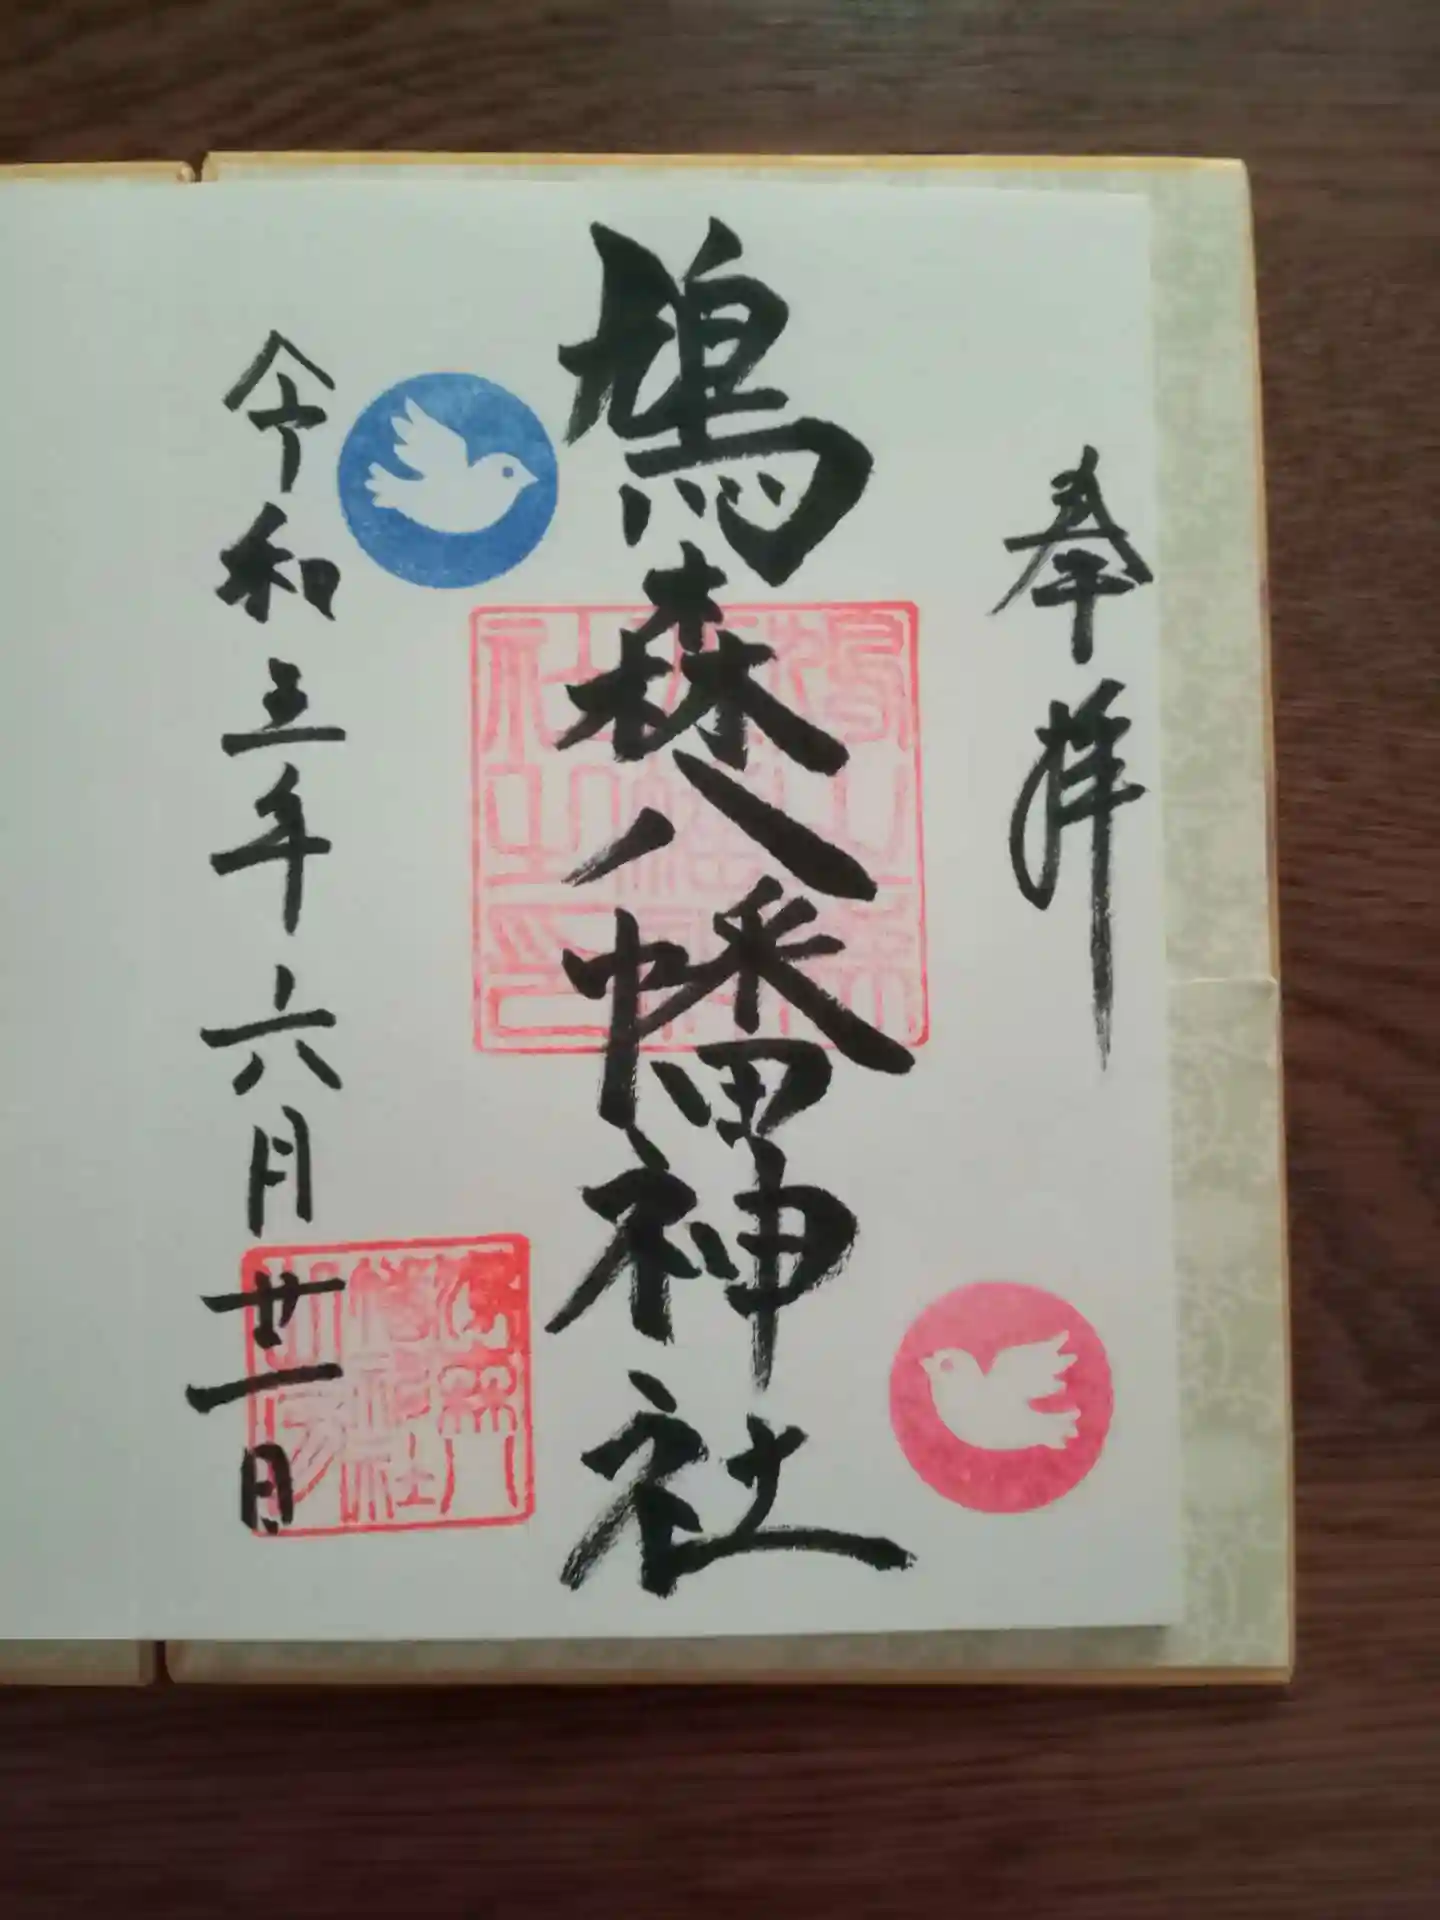 奉拝
鳩森八幡神社
令和三年六月廿一日